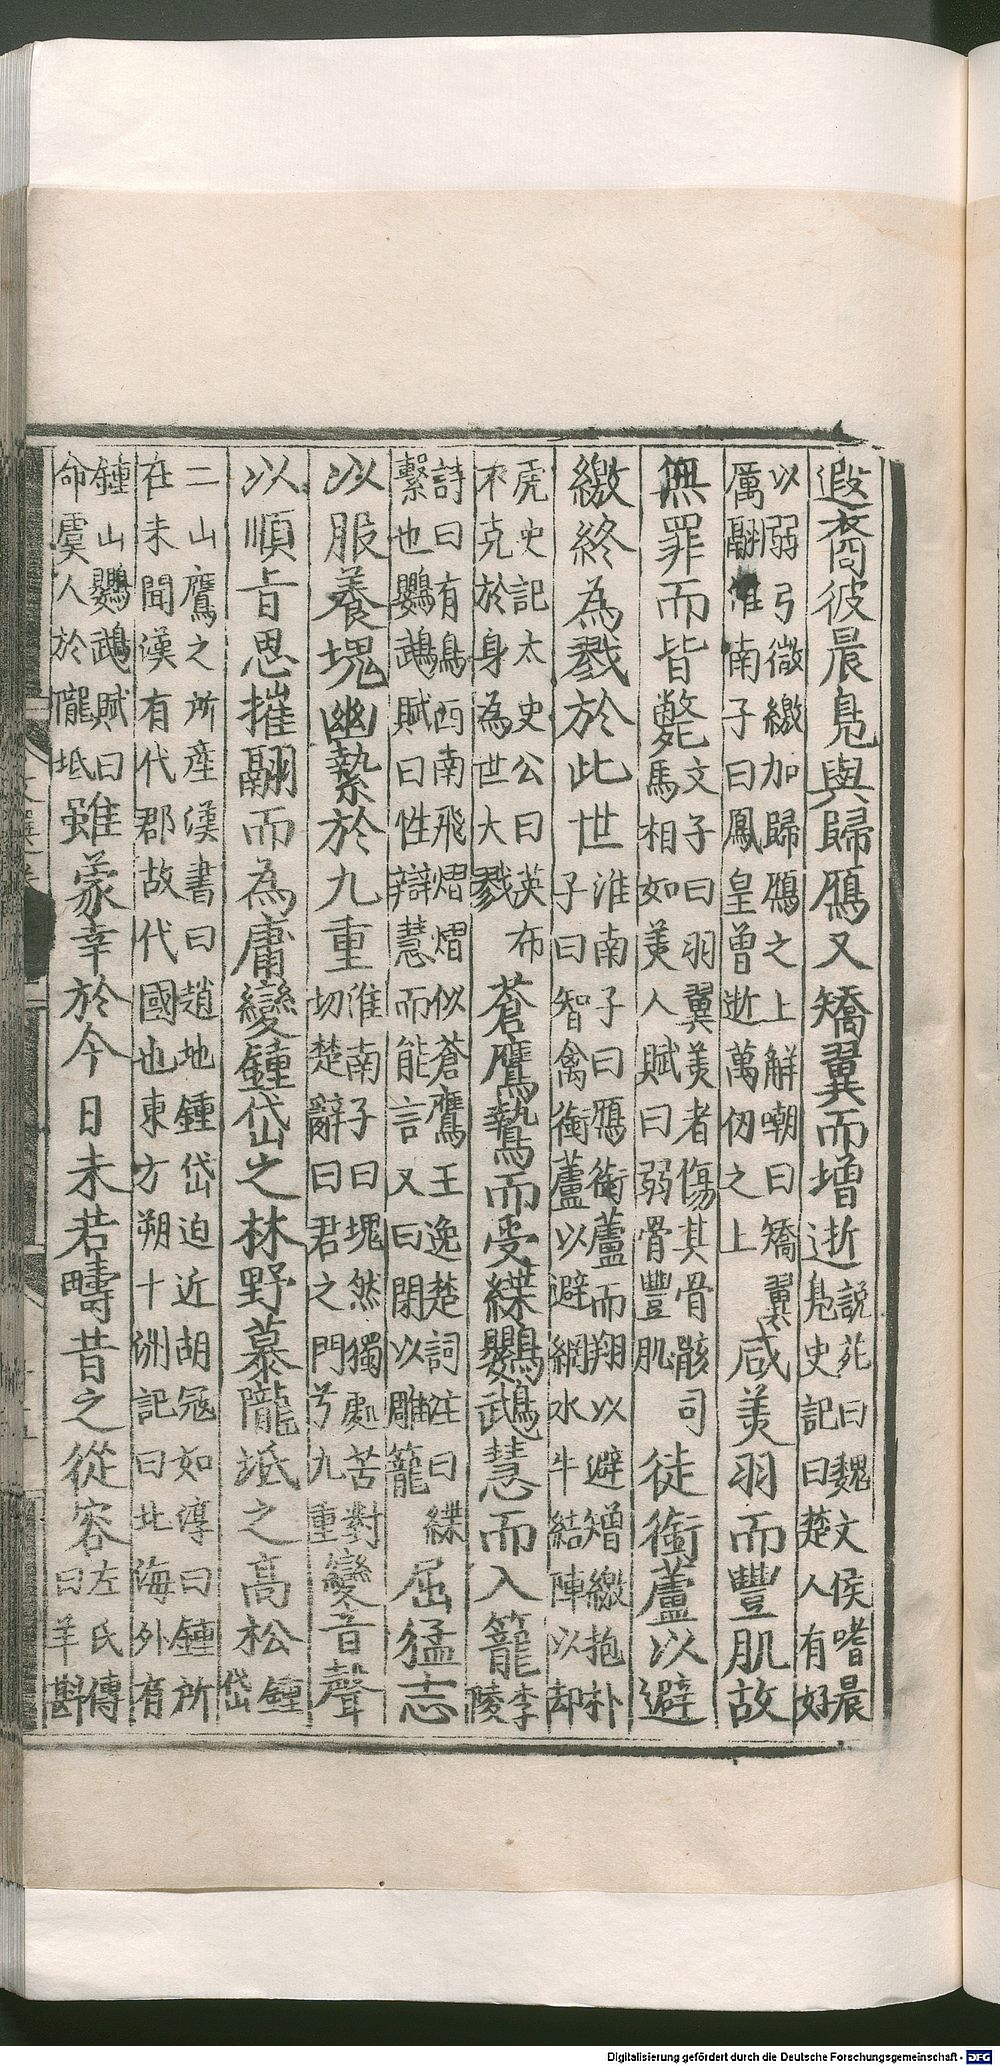 遐裔彼晨鳧與歸鴈又矯翼而增逝說苑曰魏文侯嗜晨鳧史記曰楚人有好
以弱弓微繳加歸鴈之上解嘲曰矯翼厲翮淮南子曰鳳皇曾逝萬仞之上咸美羽而豐肌故
無罪而皆斃文子曰羽翼美者傷其骨骸司馬相如美人賦曰弱骨豐肌徒銜蘆以避
繳終為戮於此世淮南子曰鴈銜蘆而翔以避矰繳抱朴子曰智禽銜蘆以避網水牛結陣以却
虎史記太史公曰英布不克於身為世大戮蒼鷹鷙而受緤鸚鵡慧而入籠李陵
詩曰有鳥西南飛熠熠似蒼鷹王逸楚詞注曰緤繫也鸚鵡賦曰性辯慧而能言又曰閉以雕籠屈猛志
以服養塊幽縶於九重淮南子曰塊然獨處苦對切楚辭曰君之門兮九重變音聲
以順旨思摧翮而為庸變鍾岱之林野慕隴坻之高松鍾岱
二山鷹之所產漢書曰趙地鍾岱迫近胡冠如淳曰鍾所在未聞漢有代郡故代國也東方朔十洲記曰北海外有
鍾山鸚鵡賦曰命虞人於隴坻雖蒙幸於今日未若疇昔之從容左氏傳曰羊斟
Digitalisierung gefördert durch die Deutsche Forschungsgemeinschaft - DFG